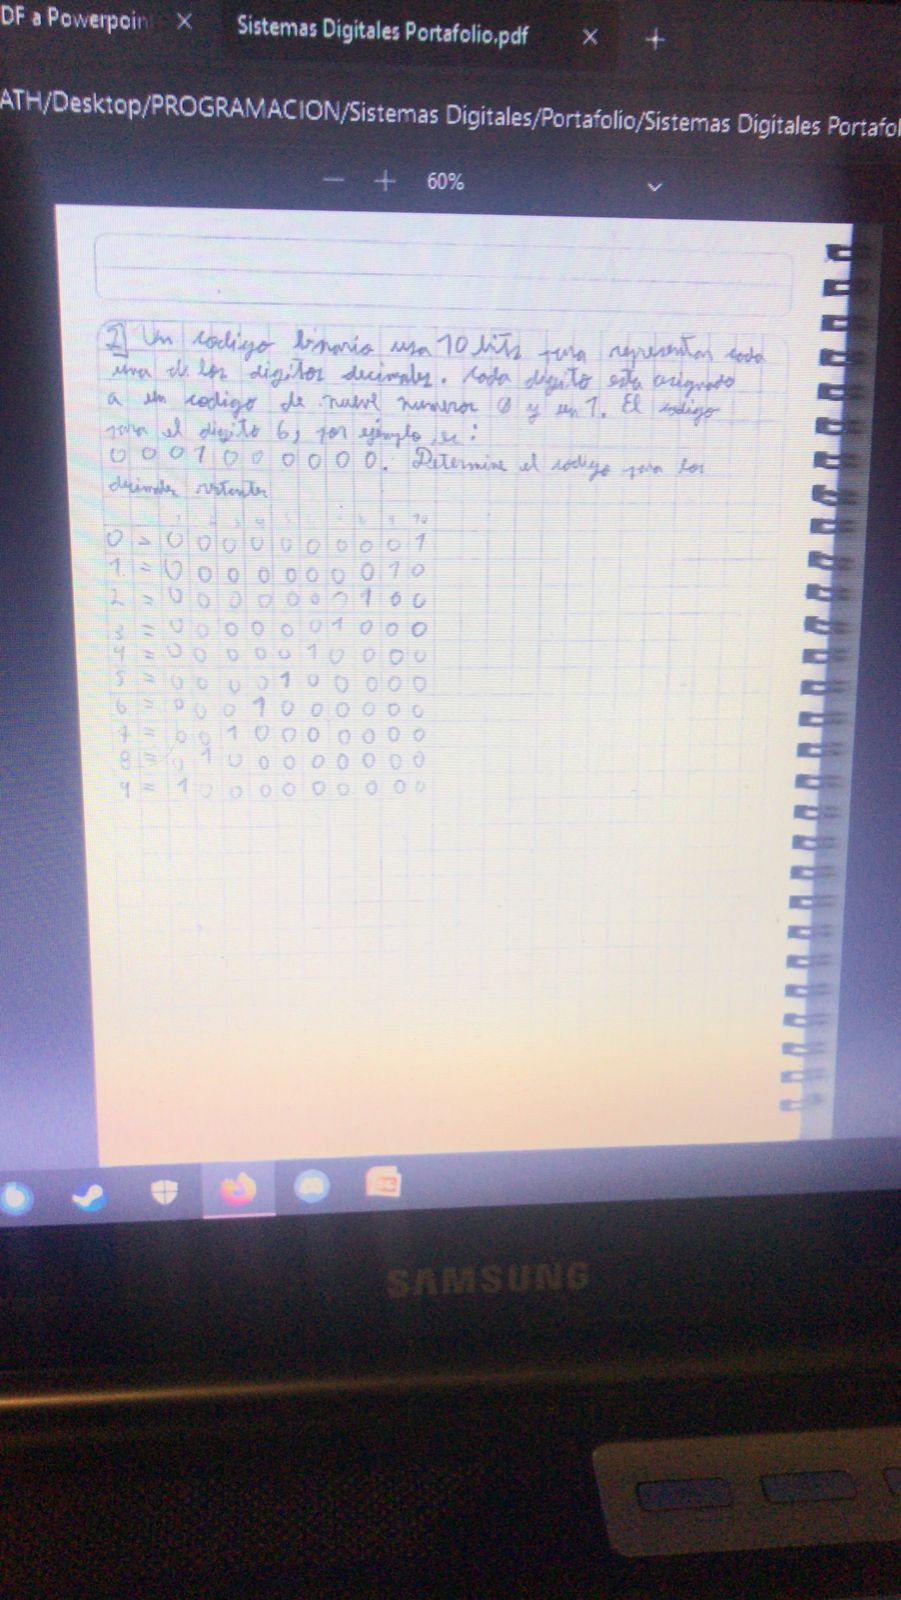 DF a Powerpoin
Sistemas Digitales Portafolio.pdf
ATH/Desktop/PROGRAMACION/Sistemas Digitales/Portafolio/Sistemas Digitales Portafol
60%
Un codigo binario usa 10 bits para representar cada
una de los digitos decimales. Cada digito esta asignado
a un codigo de nueve numeros 0 y un 1. El codigo
para el digito 6, por ejemplo es:
0001000000. Determine el codigo para los
decimales restantes
1 2 3 4 5 6 7 8 9 10
0 = 0 0 0 0 0 0 0 0 0 1
1 = 0 0 0 0 0 0 0 0 1 0
2 = 0 0 0 0 0 0 0 1 0 0
3 = 0 0 0 0 0 0 1 0 0 0
4 = 0 0 0 0 0 1 0 0 0 0
5 = 0 0 0 0 1 0 0 0 0 0
6 = 0 0 0 1 0 0 0 0 0 0
7 = 0 0 1 0 0 0 0 0 0 0
8 = 0 1 0 0 0 0 0 0 0 0
9 = 1 0 0 0 0 0 0 0 0 0
SAMSUNG